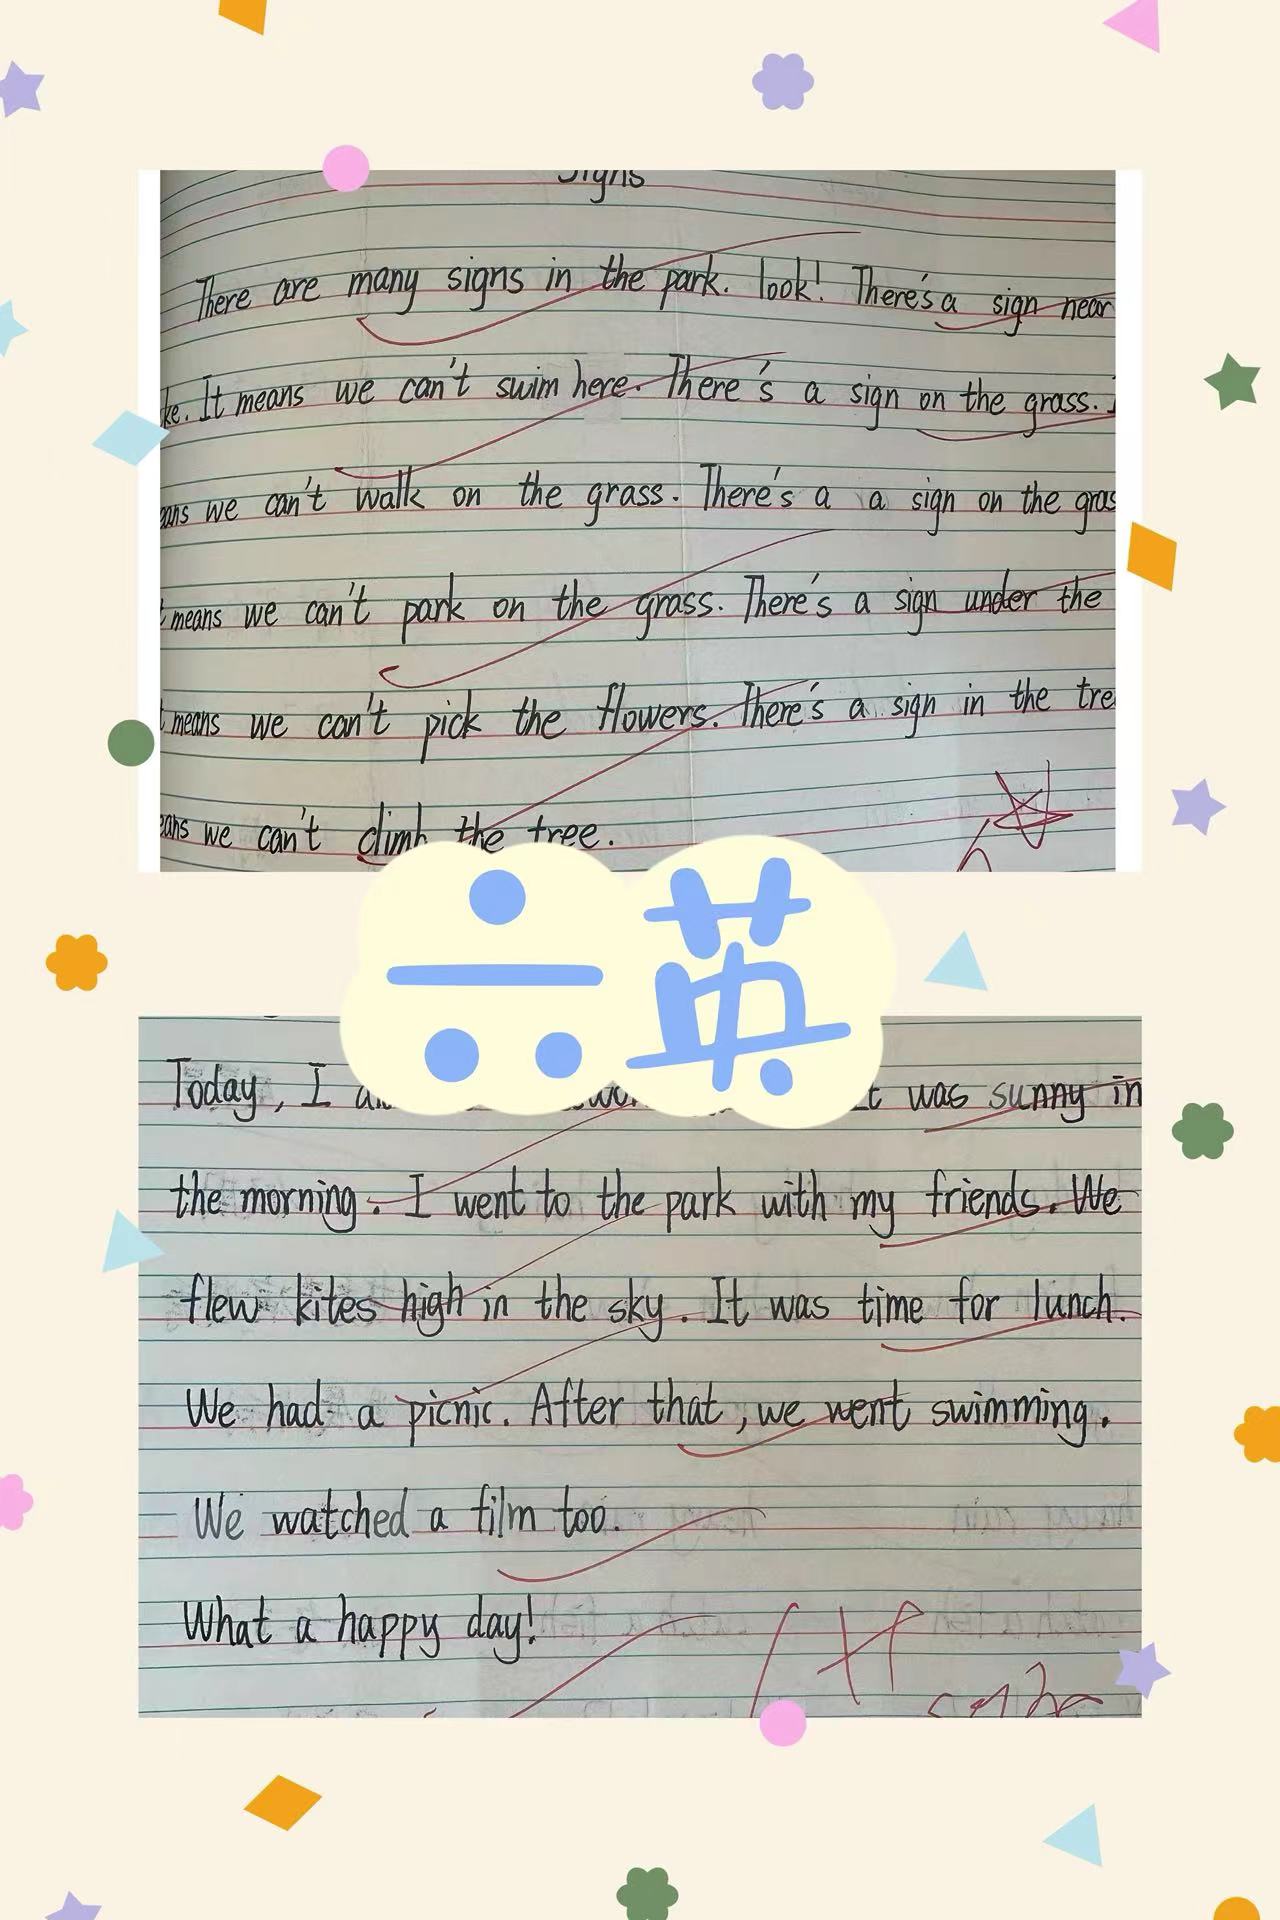 Signs
There are many signs in the park. look! There's a sign near
It means we can't swim here. There's a sign on the grass.
we can't walk on the grass. There's a a sign on the
means we can't park on the grass. There's a sign under the
means we can't pick the flowers. There's a sign in the
we can't climb the tree.
六英
Today, I was sunny in
the morning. I went to the park with my friends. We
flew kites high in the sky. It was time for lunch.
We had a picnic. After that, we went swimming.
We watched a film too.
What a happy day!